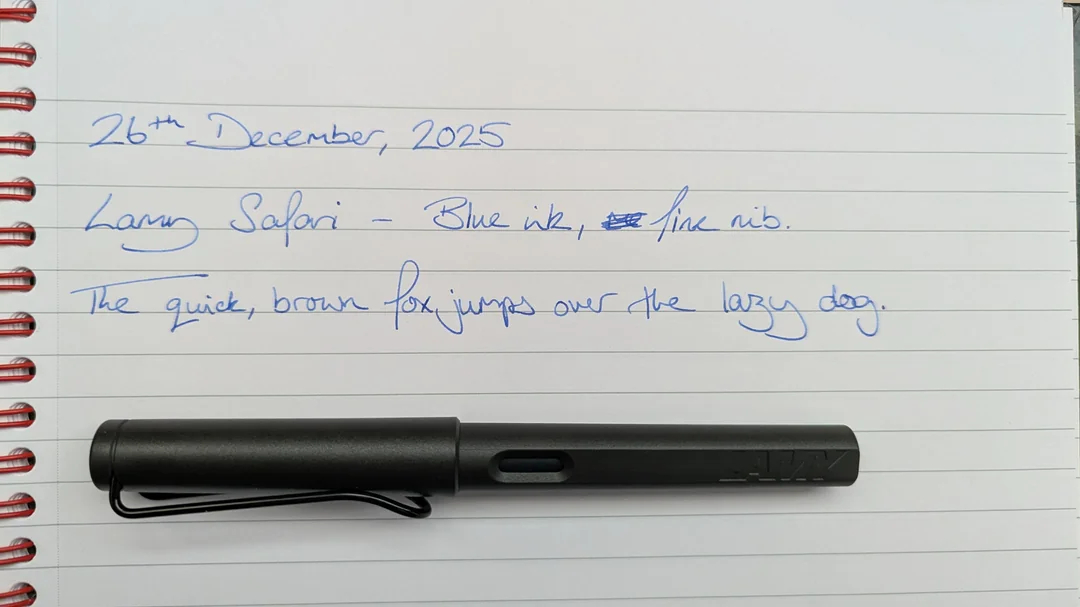 26th December, 2025
Lamy Safari - Blue ink, fine nib.
The quick, brown fox, jumps over the lazy dog.
LAMY